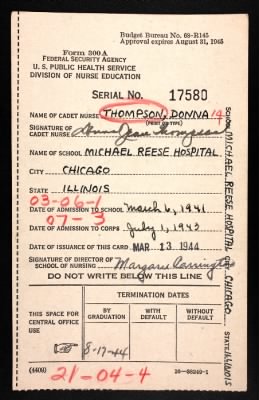 Budget Bureau No. 68-R145
Approval expires August 31, 1945
Form 300A
FEDERAL SECURITY AGENCY
U. S. PUBLIC HEALTH SERVICE
DIVISION OF NURSE EDUCATION
SERIAL No. 17580
NAME OF CADET NURSE THOMPSON, DONNA 14
(PRINT OR TYPE)
SIGNATURE OF
CADET NURSE Donna Jean Thompson
NAME OF SCHOOL MICHAEL REESE HOSPITAL
CITY CHICAGO
STATE ILLINOIS
03-06-1
DATE OF ADMISSION TO SCHOOL March 6, 1941
07-3
DATE OF ADMISSION TO CORPS July 1, 1943
DATE OF ISSUANCE OF THIS CARD MAR 13 1944
SIGNATURE OF DIRECTOR
OF SCHOOL OF NURSING Margaret Carrington
DO NOT WRITE BELOW THIS LINE
THIS SPACE FOR
CENTRAL OFFICE
USE
TERMINATION DATES
BY
GRADUATION
WITH
DEFAULT
WITHOUT
DEFAULT
8-17-44
(4404)
21-04-4
16-38249-1
SCHOOL MICHAEL REESE HOSPITAL CITY CHICAGO STATE ILLINOIS